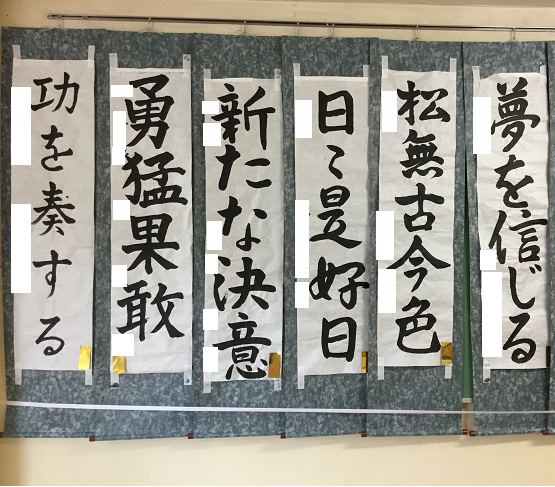 夢を信じる
松無古今色
日々是好日
新たな決意
勇猛果敢
功を奏する